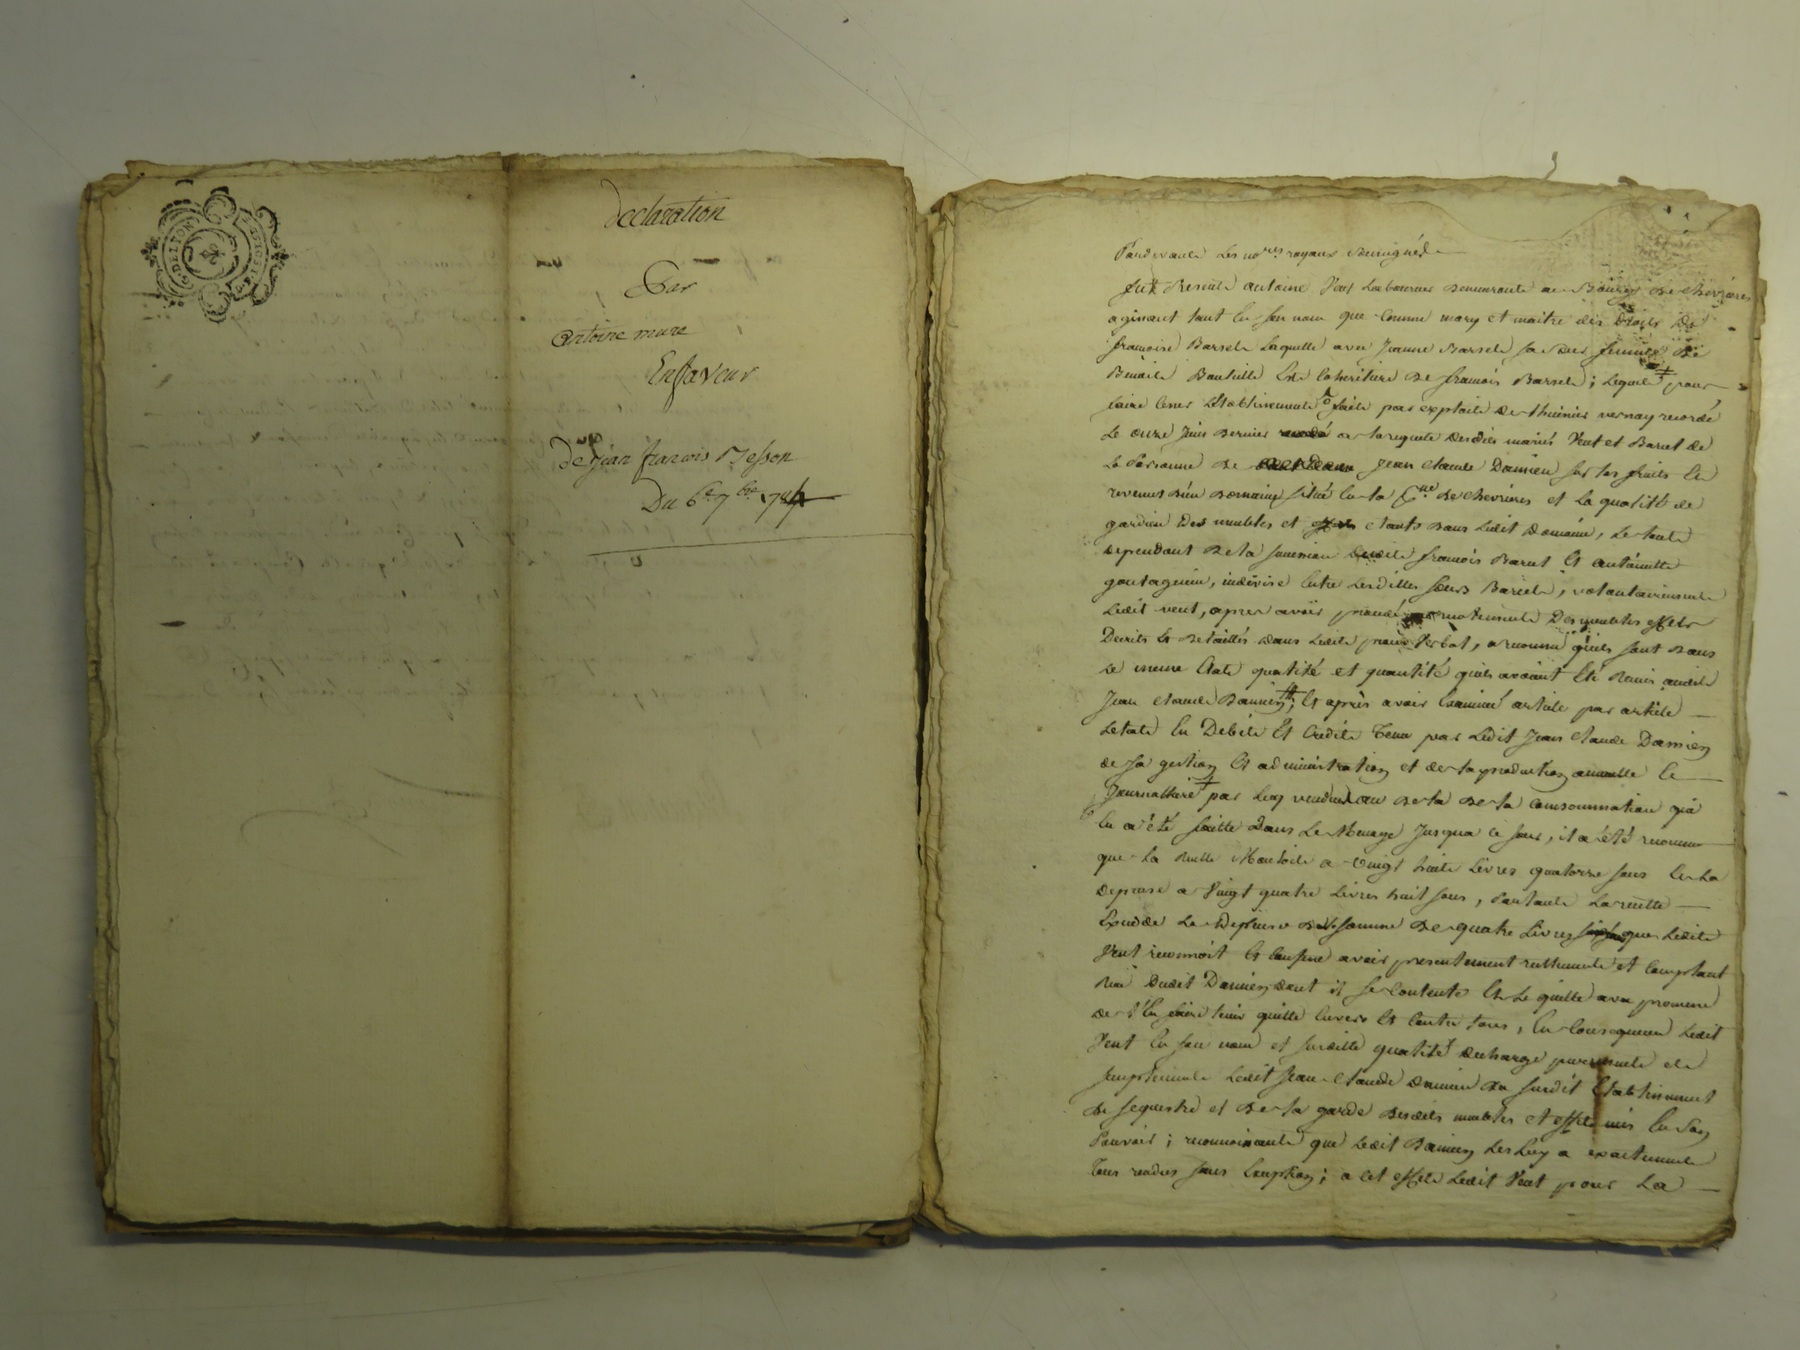 G. DE LYON
declaration
Par
antoine mure
En faveur
de jean francois Besson
Du 6e 7bre 1784
Pardevant les nores royaux soussignés
fut Present antoine Vent Laboureur demeurant au Bourg de Chevrieres
agissant tant En son nom que Comme mary et maitre des Droits de
francoise Barsel Laquelle avec Jeanne Barsel sa sœur femme de
Benoit Est Coheritiere de francois Barsel; Lequel pour
faire Cesser L'Etablissement fait par exploit de thuinier vernay
Le onze Juin dernier a la requete desdits mariés Vent et Barsel de
La Personne de Jean Claude Damien sur les fruits Et
revenus d'un domaine situé En la Pse de Chevrieres et La qualité de
gardien Des meubles et etants dans Ledit domaine, Le tout
dependant de la succession dudit francois Barsel Et antoinette
indivise Entre Lesdittes sœurs Barsel; volontairement
Ledit vent, apres avoir des meubles effets
Decrits Et detaillés dans Ledit procès Verbal, a reconnu qu'ils sont dans
Le meme Etat qualité et quantité qu'ils avoient Eté Remis audit
Jean Claude Damien; Et après avoir Examiné article par article
L'etat En Debit Et Credit Tenu par Ledit Jean Claude Damien
de sa gestion Et administration et de la production annuelle Et
Journalliere par Luy vendu au de la de la Consommation qui
En a été faitte Dans Le Menage Jusqu'a ce jour, il a été reconnu
que La Recette Montoit a Vingt huit Livres quatorze sous Et La
depense a Vingt quatre Livres huit sous, Partant La recette
Excede Le Depense de La somme de quatre Livres six sous que Ledit
Vent reconnoit Et Confesse avoir presentement reellement et Comptant
Reçu Dudit Damien dont il se Contente Et Le quitte avec promesse
de L'En faire tenir quitte Envers Et Contre tous, En Consequence Ledit
Vent En son nom et susditte qualité decharge purement et
simplement Ledit Jean Claude Damien du susdit Etablissement
de sequestre et de la garde desdits meubles et effets mis En son
Pouvoir; reconnoissant que Ledit Damien Les Luy a exactement
Tous rendus sans Exception; a cet effet Ledit Vent pour La